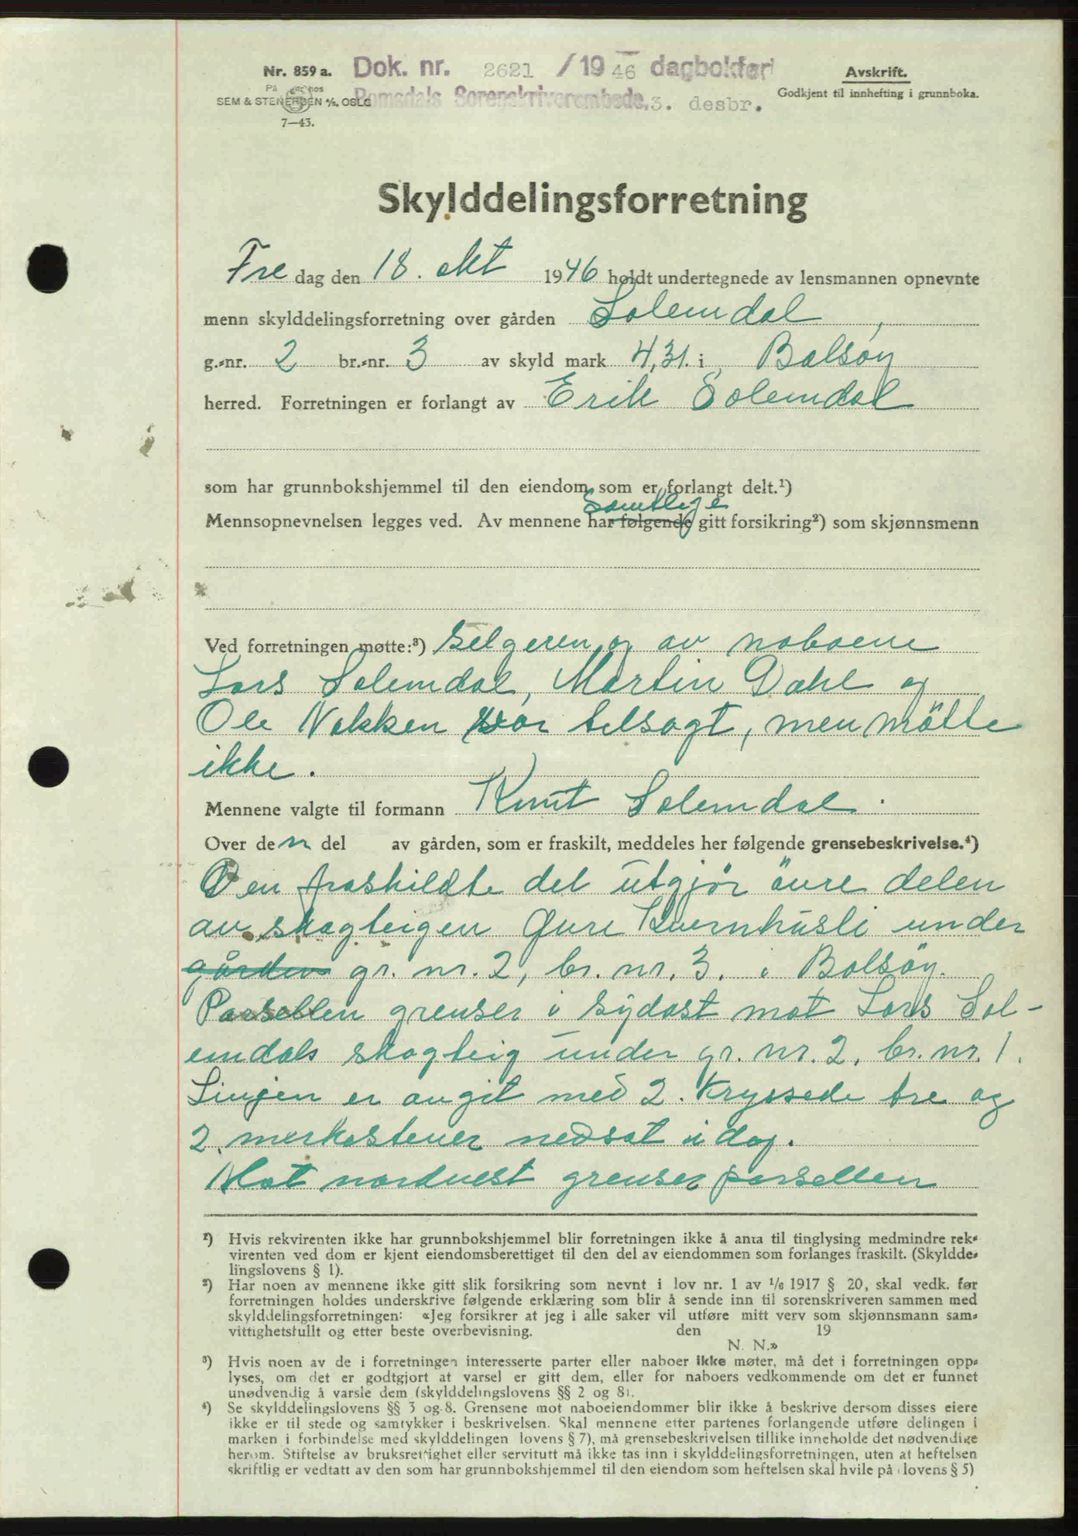 Nr. 859 a. Dok. nr. 2621 / 19 46 dagbokført Avskrift.
SEM & STENERSEN A/S, OSLO Romsdals Sorenskriverembede, 3. desbr. Godkjent til innhefting i grunnboka.
7—43.
Skylddelingsforretning
Fre dag den 18. okt 1946 holdt undertegnede av lensmannen opnevnte
menn skylddelingsforretning over gården Solemdal,
g.-nr. 2 br.-nr. 3 av skyld mark 4,31. i Bolsöy
herred. Forretningen er forlangt av Erik Solemdal
som har grunnbokshjemmel til den eiendom som er forlangt delt.¹)
Samtlige
Mennsopnevnelsen legges ved. Av mennene har følgende gitt forsikring²) som skjønnsmenn
Ved forretningen møtte:³) Selgeren og av naboene
Lars Solemdal, Martin Dahl og
Ole Nakken var tilsagt, men mötte
ikke.
Mennene valgte til formann Knut Solemdal.
Over den del av gården, som er fraskilt, meddeles her følgende grensebeskrivelse.⁴)
Den fraskildte del utgjör övre delen
av skogteigen Övre Kvernhusli under
gården gr. nr. 2, br. nr. 3. i Bolsöy.
Parsellen grenser i sydöst mot Lars Sol-
emdals skogteig under gr. nr. 2. br. nr. 1.
Linjen er angit med 2. kryssede tre og
2. merkestener nedsat idag.
Mot nordvest grenser parsellen
¹) Hvis rekvirenten ikke har grunnbokshjemmel blir forretningen ikke å anta til tinglysing medmindre rek-
virenten ved dom er kjent eiendomsberettiget til den del av eiendommen som forlanges fraskilt. (Skyldde-
lingslovens § 1).
²) Har noen av mennene ikke gitt slik forsikring som nevnt i lov nr. 1 av ¹/₆ 1917 § 20, skal vedk. før
forretningen holdes underskrive følgende erklæring som blir å sende inn til sorenskriveren sammen med
skylddelingsforretningen: «Jeg forsikrer at jeg i alle saker vil utføre mitt verv som skjønnsmann sam-
vittighetsfullt og etter beste overbevisning. den 19
N. N.»
³) Hvis noen av de i forretningen interesserte parter eller naboer ikke møter, må det i forretningen opp-
lyses, om det er godtgjort at varsel er gitt dem, eller for naboers vedkommende om det er funnet
unødvendig å varsle dem (skylddelingslovens §§ 2 og 8).
⁴) Se skylddelingslovens §§ 3 og 8. Grensene mot naboeiendommer blir ikke å beskrive dersom disses eiere
ikke er til stede og samtykker i beskrivelsen. Skal mennene etter partenes forlangende utføre delingen i
marken i forbindelse med skylddelingen lovens § 7), må grensebeskrivelsen tillike inneholde det nødvendige
herom. Stiftelse av bruksrettighet eller servitutt må ikke tas inn i skylddelingsforretningen, uten at heftelsen
skriftlig er vedtatt av den som har grunnbokshjemmel til den eiendom som heftelsen skal hvile på lovens § 5)